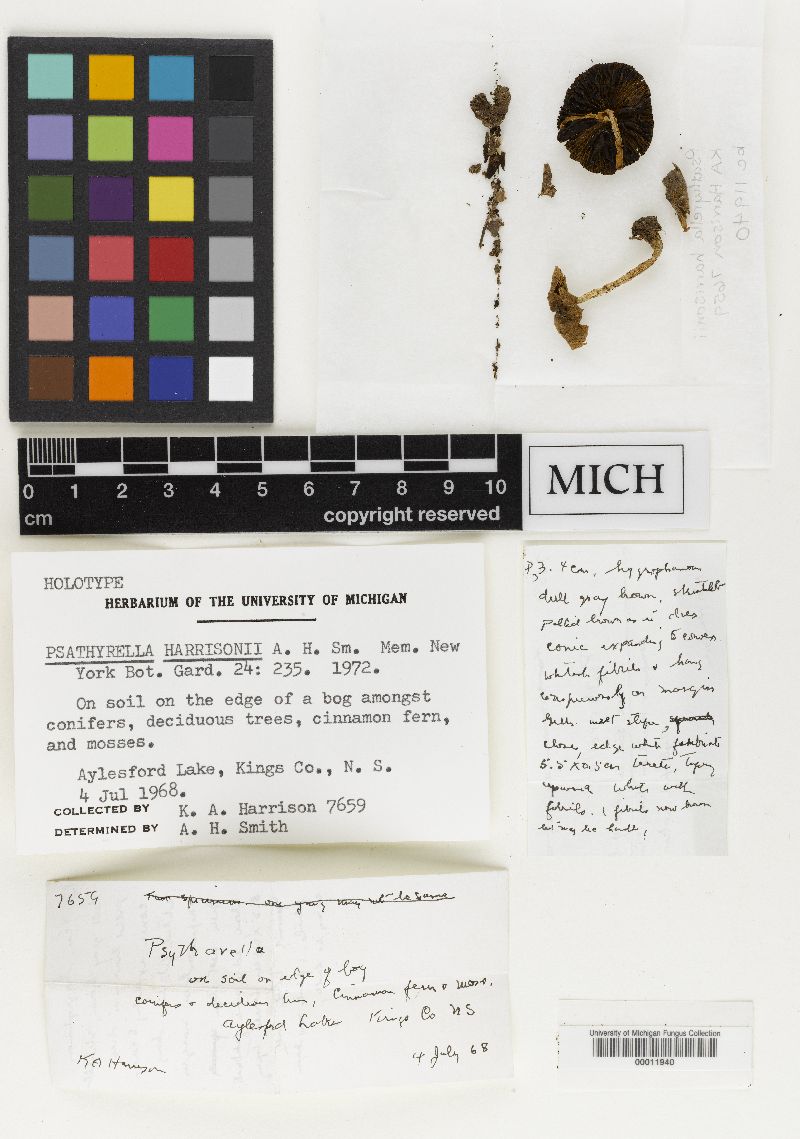 bc 11940
KA Harrison 7659
Psathyrella harrisonii
0 1 2 3 4 5 6 7 8 9 10
cm
copyright reserved
MICH
HOLOTYPE
HERBARIUM OF THE UNIVERSITY OF MICHIGAN
PSATHYRELLA HARRISONII A. H. Sm. Mem. New
York Bot. Gard. 24: 235. 1972.
On soil on the edge of a bog amongst
conifers, deciduous trees, cinnamon fern,
and mosses.
Aylesford Lake, Kings Co., N. S.
4 Jul 1968.
COLLECTED BY K. A. Harrison 7659
DETERMINED BY A. H. Smith
P, 3. 4 cm, hygrophanous
dull gray brown,
pallid brown as it dries
conic expanding
whitish fibrils & hang
conspicuously on margin
close, edge white
5.5 X 0.5 cm terete,
upward white with
fibrils.
7659
Psytharella
on soil on edge of bog
conifers & decidious trees, Cinnamon fern & moss.
Aylesford Lake Kings Co NS
KA Harrison
4 July 68
University of Michigan Fungus Collection
00011940